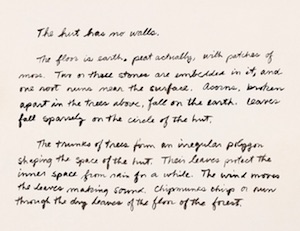 The hut has no walls.
The floor is earth, peat actually, with patches of
moss. Two or three stones are embedded in it, and
one root runs near the surface. Acorns, broken
apart in the trees above, fall on the earth. Leaves
fall sparsely on the circle of the hut.
The trunks of trees form an irregular polygon
shaping the space of the hut. Their leaves protect the
inner space from rain for a while. The wind moves
the leaves making sound. Chipmunks chirp or run
through the dry leaves of the floor of the forest.